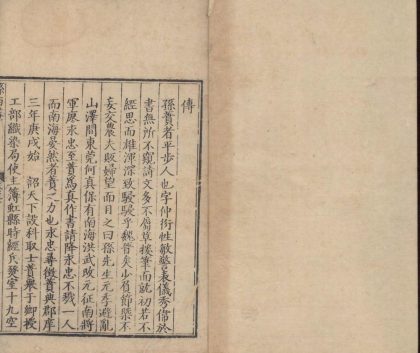 傳
孫蕡者平步人也字仲衍性敏慧長儀秀偉於
書無所不窺詩文多不屬草援筆而就初若不
經思而雄渾深致駸駸乎魏晉矣少負節槩不
妄交農夫販婦望而目之曰孫先生元季避亂
山澤間東莞何真保有南海洪武改元征南將
軍廖永忠至蕡為真作書請降永忠不戮一人
而南海晏然者蕡之力也永忠尋徵蕡典郡庠
三年庚戌始 詔天下設科取士蕡舉于鄉授
工部織染局使主簿虹縣時經兵燹室十九空